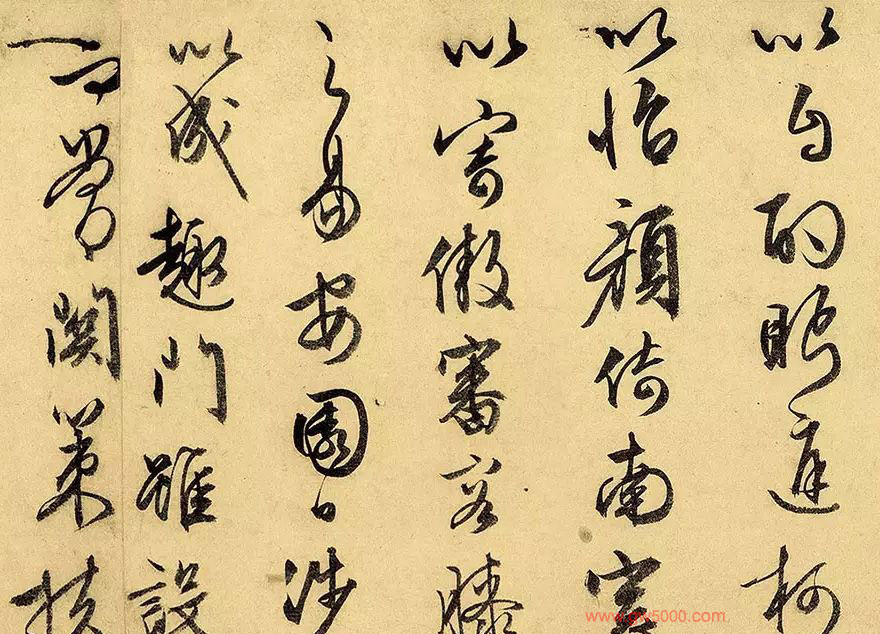 以自酌眄庭柯
以怡顏倚南窗
以寄傲審容膝
之易安園日涉
以成趣門雖設
而常關策扶
www.gw5000.com